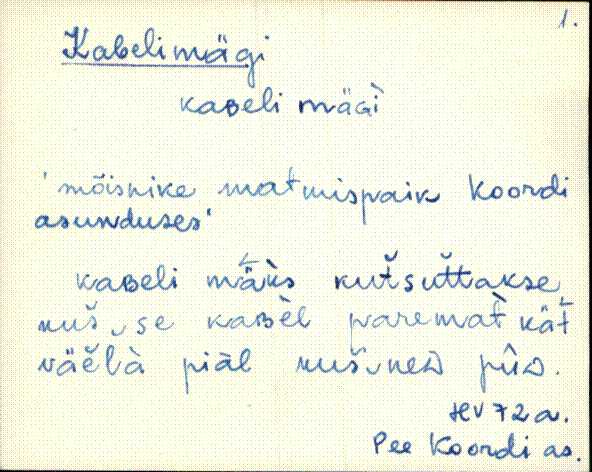 1.
Kabelimägi
kaʙeli mäɢì
'mõisnike matmispaik Koordi
asunduses'
kaʙeli mä̀ks kutšuttakse
kuš, se kaʙèl paremat kät
piäl nuš, neᴅ
HV 72 a.
Pee Koordi as.